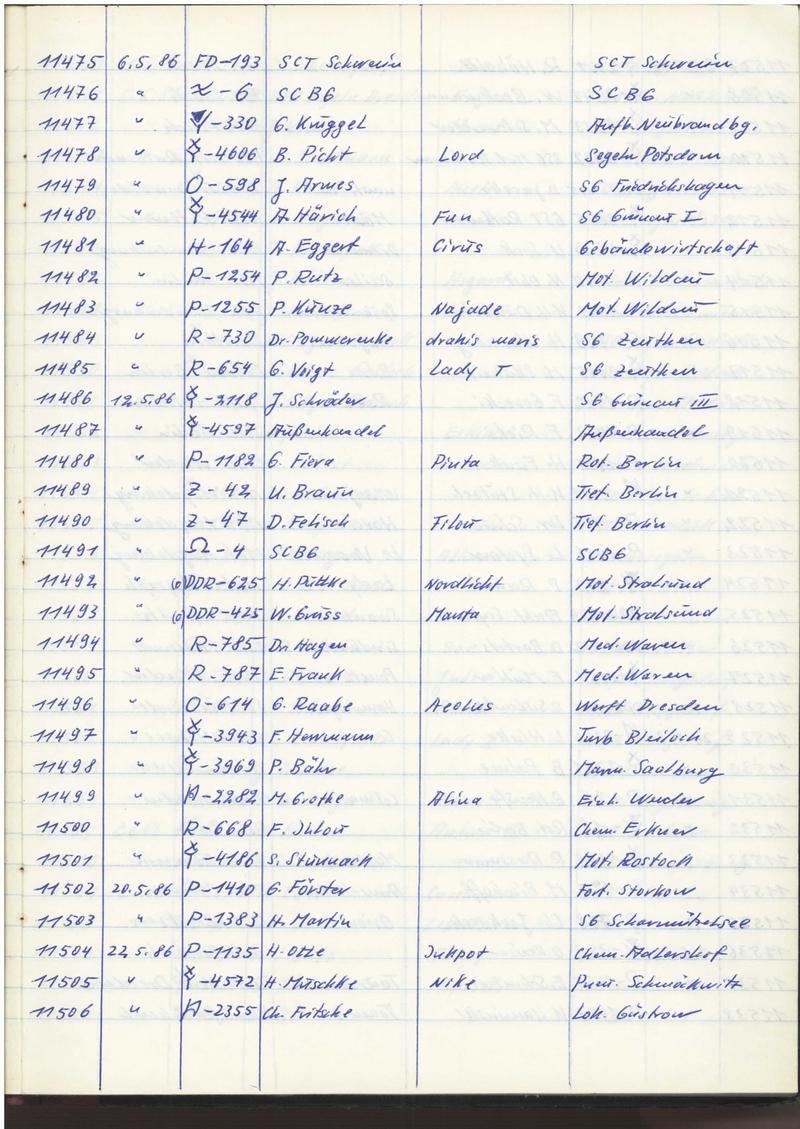 11475 6.5.86 FD-193 SCT Schwerin SCT Schwerin
11476 " ≈-6 SCBG SCBG
11477 " -330 G. Krüggel Aufb. Neubrandbg.
11478 " -4606 B. Picht Lord Segeln Potsdam
11479 " O-598 J. Armes SG Friedrichshagen
11480 " -4544 A. Härich Fun SG Grünau I
11481 " H-164 A. Eggert Cirus Gebäudewirtschaft
11482 " P-1254 P. Rutz Mot. Wildau
11483 " P-1255 P. Kunze Najade Mot. Wildau
11484 " R-730 Dr. Pommerenke drakis maris SG Zeuthen
11485 " R-654 G. Voigt Lady T SG Zeuthen
11486 12.5.86 -2118 J. Schröder SG Grünau III
11487 " -4597 Außenhandel Außenhandel
11488 " P-1182 G. Fiera Pinta Rot. Berlin
11489 " Z-42 U. Braun Tief. Berlin
11490 " Z-47 D. Felisch Filou Tief. Berlin
11491 " Ω-4 SCBG SCBG
11492 " DDR-625 H. Püttke Nordlicht Mot. Stralsund
11493 " DDR-425 W. Gruss Mot. Stralsund
11494 " R-785 Dr. Hagen Med. Waren
11495 " R-787 E. Frank Med. Waren
11496 " O-614 G. Raabe Aeolus Werft Dresden
11497 " -3943 F. Herrmann Turb. Bleiloch
11498 " -3969 P. Bähr Saalburg
11499 " -2282 M. Grothe Alina Einh. Werder
11500 " R-668 F. Ihlow Chem. Erkner
11501 " -4186 S. Mot. Rostock
11502 20.5.86 P-1410 G. Förster Fort. Storkow
11503 " P-1383 H. Martin SG Scharmützelsee
11504 22.5.86 P-1135 H. Otte Inkpot Chem. Adlershof
11505 " -4572 H. Mitschke Nike Pneu. Schmöckwitz
11506 " -2355 Ch. Fritsche Lok. Güstrow